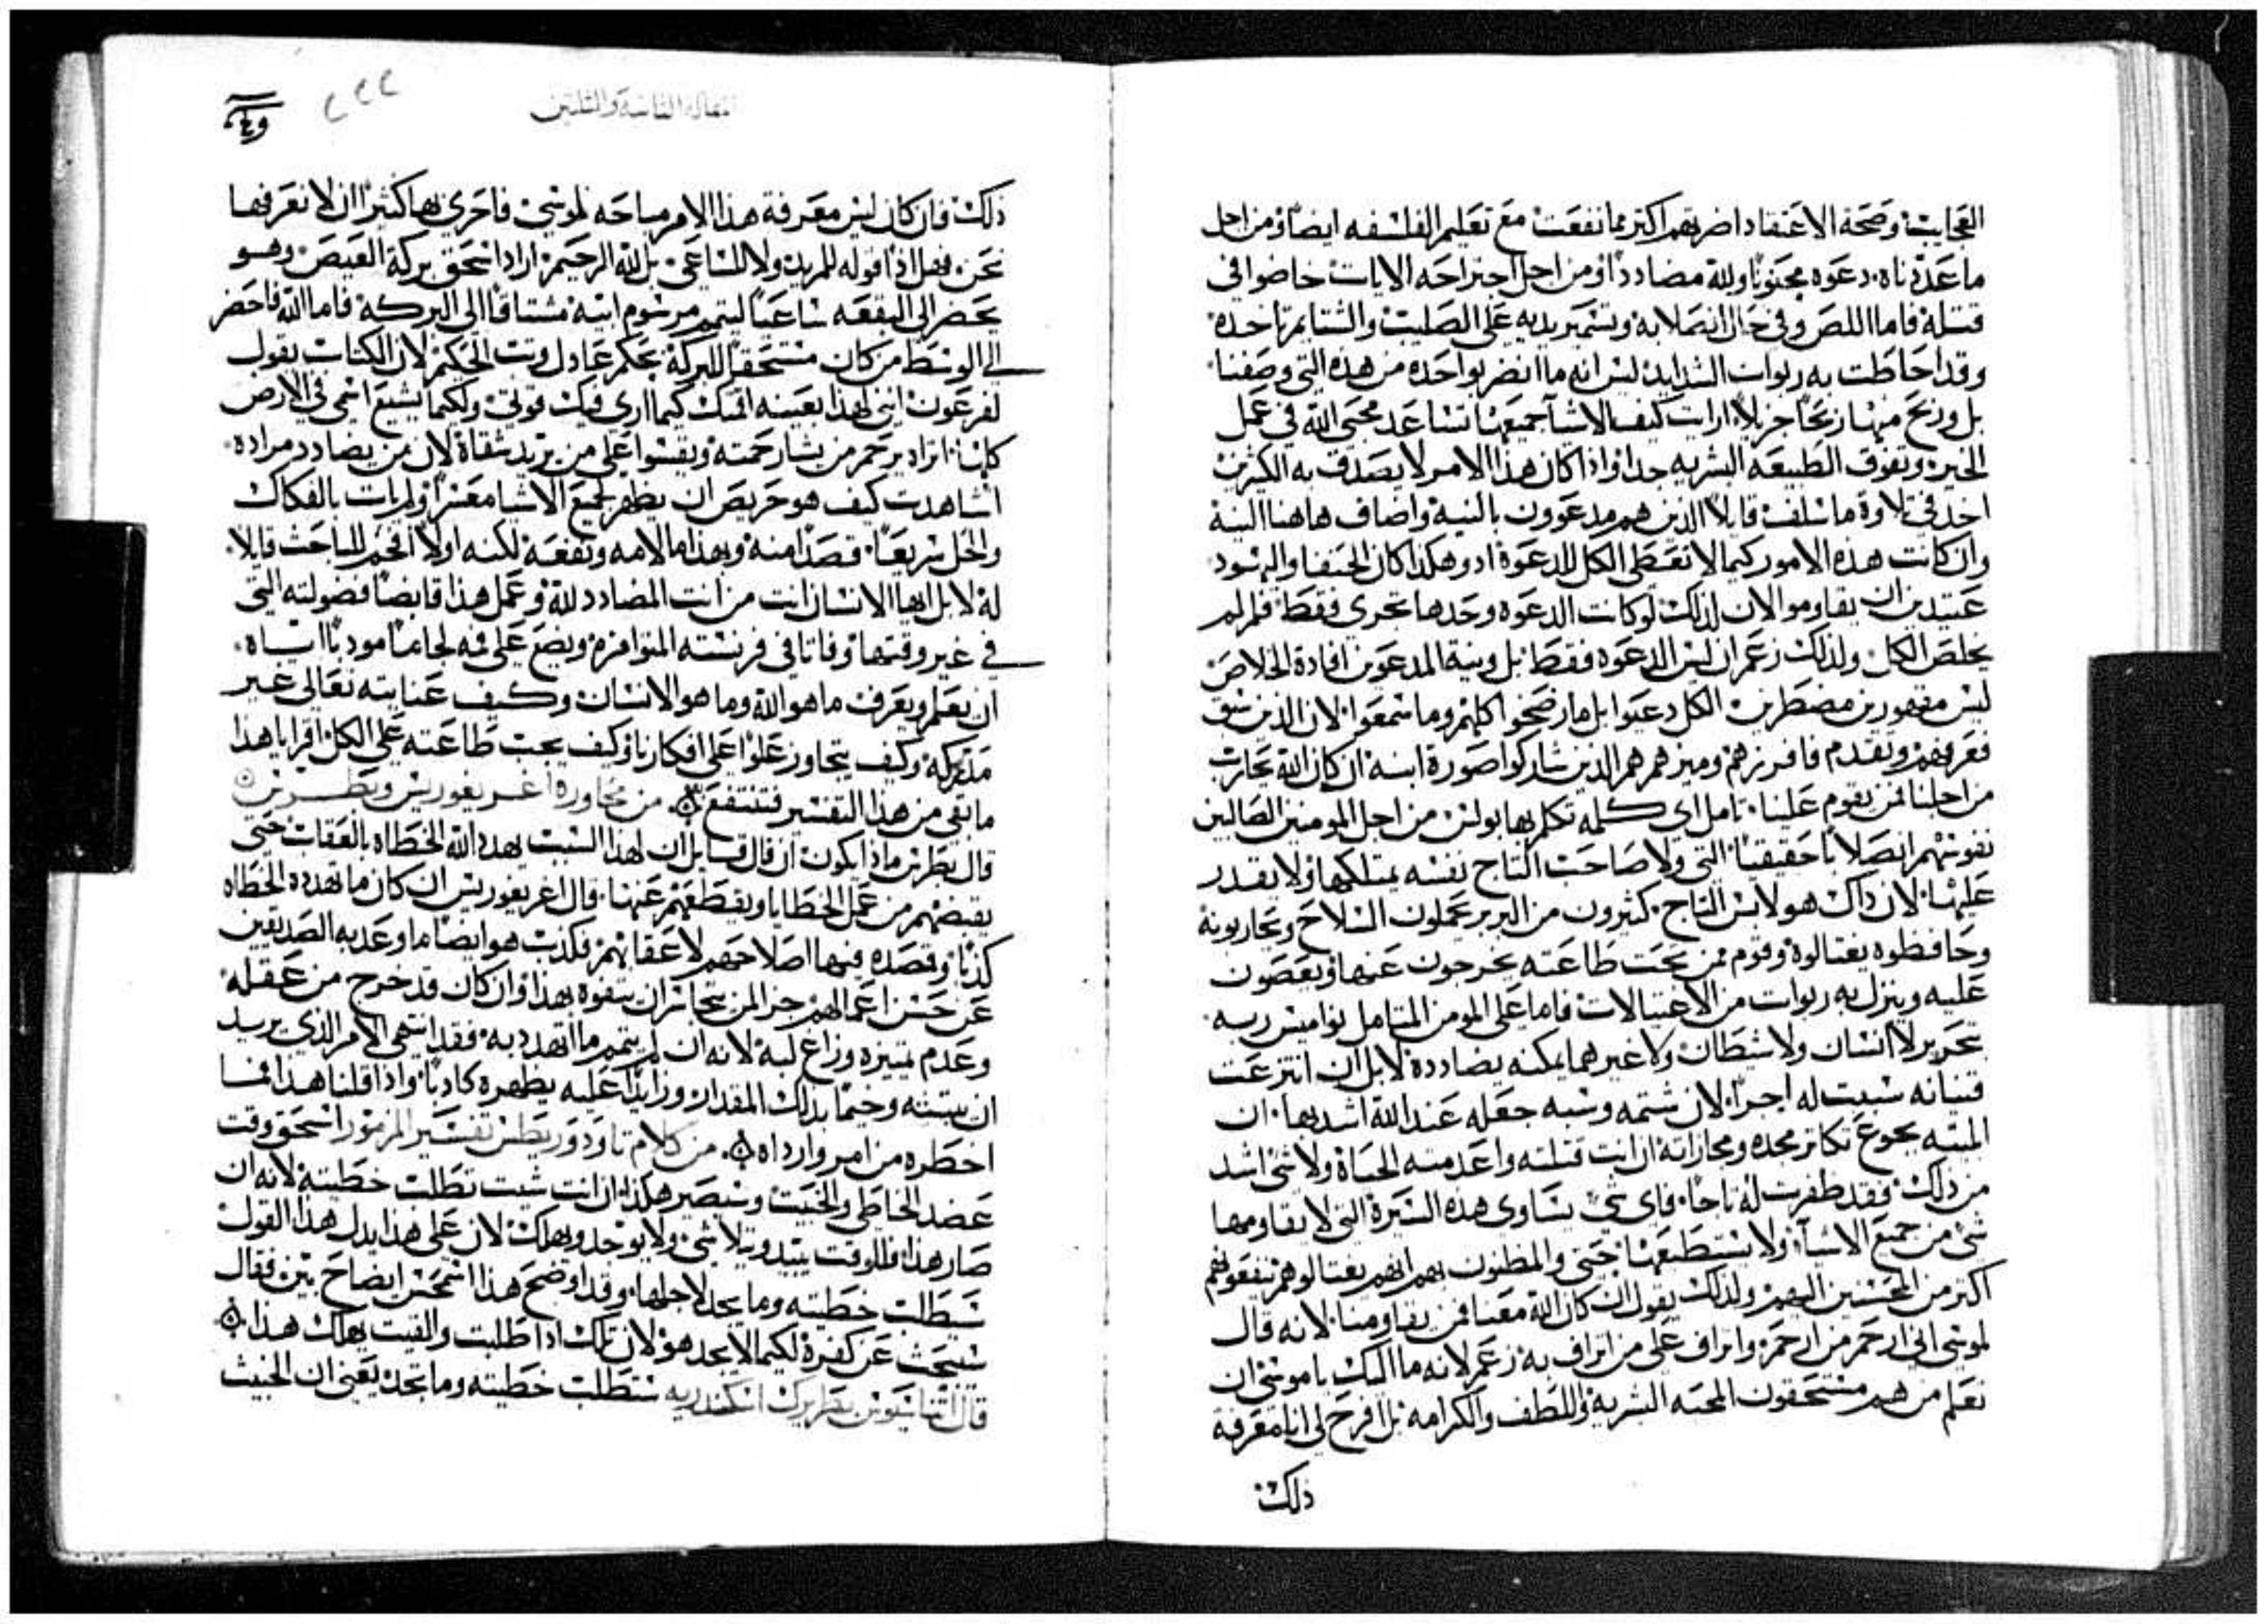 العجايب وصحة الاعتقاد اضر بهم اكثر مما نفعت مع تعليم الفلسفه ايضا ومن اجل
ما عددناه دعوه مجنونا ولله مضاددا ومن اجل اجتراحه الايات خاضوا في
قتله فاما اللص وفي حال انصلابه وتسمير يديه على الصليب والشتايم تاخده
وقد احاطت به ربوات الشدايد ليس انه ما انضر بواحده من هذه التي وصفنا
بل وربح منها ربحا جزيلا ارايت كيف الاشيا جميعها تساعد محبي الله في عمل
الخير وتفوق الطبيعه البشريه جدا واذا كان هذا الامر لا يصدق به الكثيرين
اخد في تلاوة ما سلف قايلا الذين هم مدعوون بالنية واضاف هاهنا النية
وان كانت هذه الامور كيما لا تعطى الكل للدعوة اد وهكذا كان الحنفا واليهود
عتيدين ان يقاوموا الان لذلك لو كانت الدعوه وحدها تجري فقط فلم لم
يخلص الكل ولذلك زعم ان ليس الدعوه فقط بل ونية المدعوين افادة الخلاص
ليس مقهورين مضطرين الكل دعيوا بل ما رضخوا كلهم وما سمعوا لان الذين سبق
فعرفهم وتقدم فافرزهم وميزهم هم الذين شاركوا صورة ابنه ان كان الله يحارب
من اجلنا فمن يقوم علينا تامل اي كلمه تكلم بها بولس من اجل المومنين الصالبين
نفوسهم انصلابا حقيقيا التي ولا صاحب التاج نفسه يمتلكها ولا يقدر
عليها لان ذاك هو لابس التاج كثيرون من البربر يحملون السلاح ويحاربونه
وحافظوه يغتالوه وقوم ممن تحت طاعته يخرجون عنها ويعصون
عليه وينزل به ربوات من الاغتيالات فاما على المومن المتامل نواميس ربه
تحرير لا انسان ولا شيطان ولا غيرهما يمكنه يضادده لا بل ان انتزعت
قنيانه سببت له اجرا لان شتمه وسبه جعله عند الله اشد بها ان
المته بجوع تكاثر مجده ومجازاته ان انت قتلته واعدمته الحياة ولا شي اشد
من ذلك فقد ظفرت له تاجا فاي شي يساوي هذه السيرة التي لا يقاومها
شي من جميع الاشيا ولا يستطيعها حتى والمظنون بهم انهم يغتالوهم ينفعوهم
اكثر من المحسنين اليهم ولذلك يقول ان كان الله معنا فمن يقاومنا لانه قال
لموسى اني ارحم من ارحم واتراف على من اتراف به زعم لانه ما اليك يا موسى ان
تعلم من هم مستحقون المحبه البشرية واللطف والكرامه بل افرح لي انا معرفة
ذلك
المقالة الثامنة والثلثين
٢٢٢
ذلك فان كان ليس معرفة هذا الامر مباحه لموسى فاحرى بها كثيرا ان لا نعرفها
نحن فهل اذا قوله للمريد ولا للساعى بل لله الرحيم اراد اسحق بركة العيص وهو
يحضر الى البقعه ساعيا ليتمم مرسوم ابيه مشتاقا الى البركه فاما الله فاحضر
الى الوسط من كان مستحقا للبركة بحكم عادل وتبت الحكم لان الكتاب يقول
لفرعون انني لهذا بعينه اقمتك كيما اري فيك قوتي ولكيما يشيع اسمي في الارض
كلها اتراه يرحم من يشا رحمته ويقسوا على من يريد شقاه لان من يضادد مراده
اشاهدت كيف هو حريص ان يظهر جميع الاشيا معسرا ولم يات بالفكاك
والحل سريعا قصدا منه وبهذا ما لامه ونفعه لكنه اولا افحم للباحث قايلا
له لا بل ايها الانسان انت من انت المضادد لله وعمل هذا قابضا فضولته التي
في غير وقتها وفاتا في فرنسته المتوافزه ويضع على فمه لجاما مودبا اياه
ان يعلم ويعرف ما هو الله وما هو الانسان وكيف عنايته تعالى غير
مدركه وكيف يتجاوز علوا على افكارنا وكيف يجب طاعته على الكل اقرا يا هذا
ما بقي من هذا التفسير فتنتفع من محاورة اغريغوريس وبطرس
قال بطرس ماذا يكون ان قال قايل ان لهذا السبب يهدد الله الخطاه بالعقاب حتى
يقبضهم من عمل الخطايا ويقطعهم عنها قال اغريغوريس ان كان ما تهدده الخطاه
كذبا وقصده فيها اصلاحهم لا عقابهم فكذب هو ايضا ما وعد به الصديقين
عن حسن اعمالهم جزا لمن يتجاسر ان يتفوه بهذا وان كان قد خرج من عقله
وعدم تمييزه وزاغ لبه لانه ان لم يتمم ما تهدد به فقد انتهى الامر الذي يريد
ان يبثته وحبها بذلك المقدار وزايدا عليه يظهره كاذبا واذا قلنا هذا فما
اخطره من امر وارداه من كلام تاودوريطس تفسير المزمور اسحق وقت
عضد الخاطي والخبيث وسيصير هكذا ان انت شيت تطلب خطيته لانه ان
صار هذا فللوقت يبتد ويتلاشي ولا يوجد ويهلك لان على هذا يدل هذا القول
ستطلب خطيته وما يجد لاجلها وقد اوضح هذا اسمخس ايضاح بين فقال
سيبحث عن كفره لكيما لا يجد هو لان تلك اذا طلبت والفيت يهلك هذا
قال اثناسيوس بطريرك اسكندريه ستطلب خطيته وما تجد يعني ان الخبيث